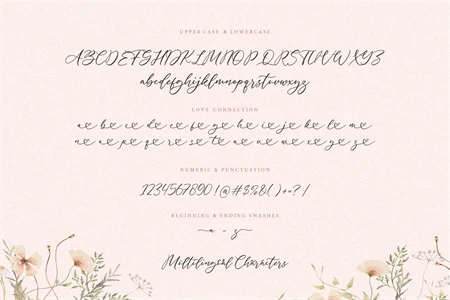 UPPERCASE & LOWERCASE
ABCDEFGHIJKLMNOPQRSTUVWXYZ
abcdefghijklmnopqrstuvwxyz
LOVE CONNECTION
ae be ce de ee fe ge he ie je ke le me
ne oe pe qe re se te ue ve we xe ye ze
NUMERIC & PUNCTUATION
1234567890 ! @ # $ % & ( ) + = ? /
BEGINNING & ENDING SWASHES
a - z
Multilingual Characters